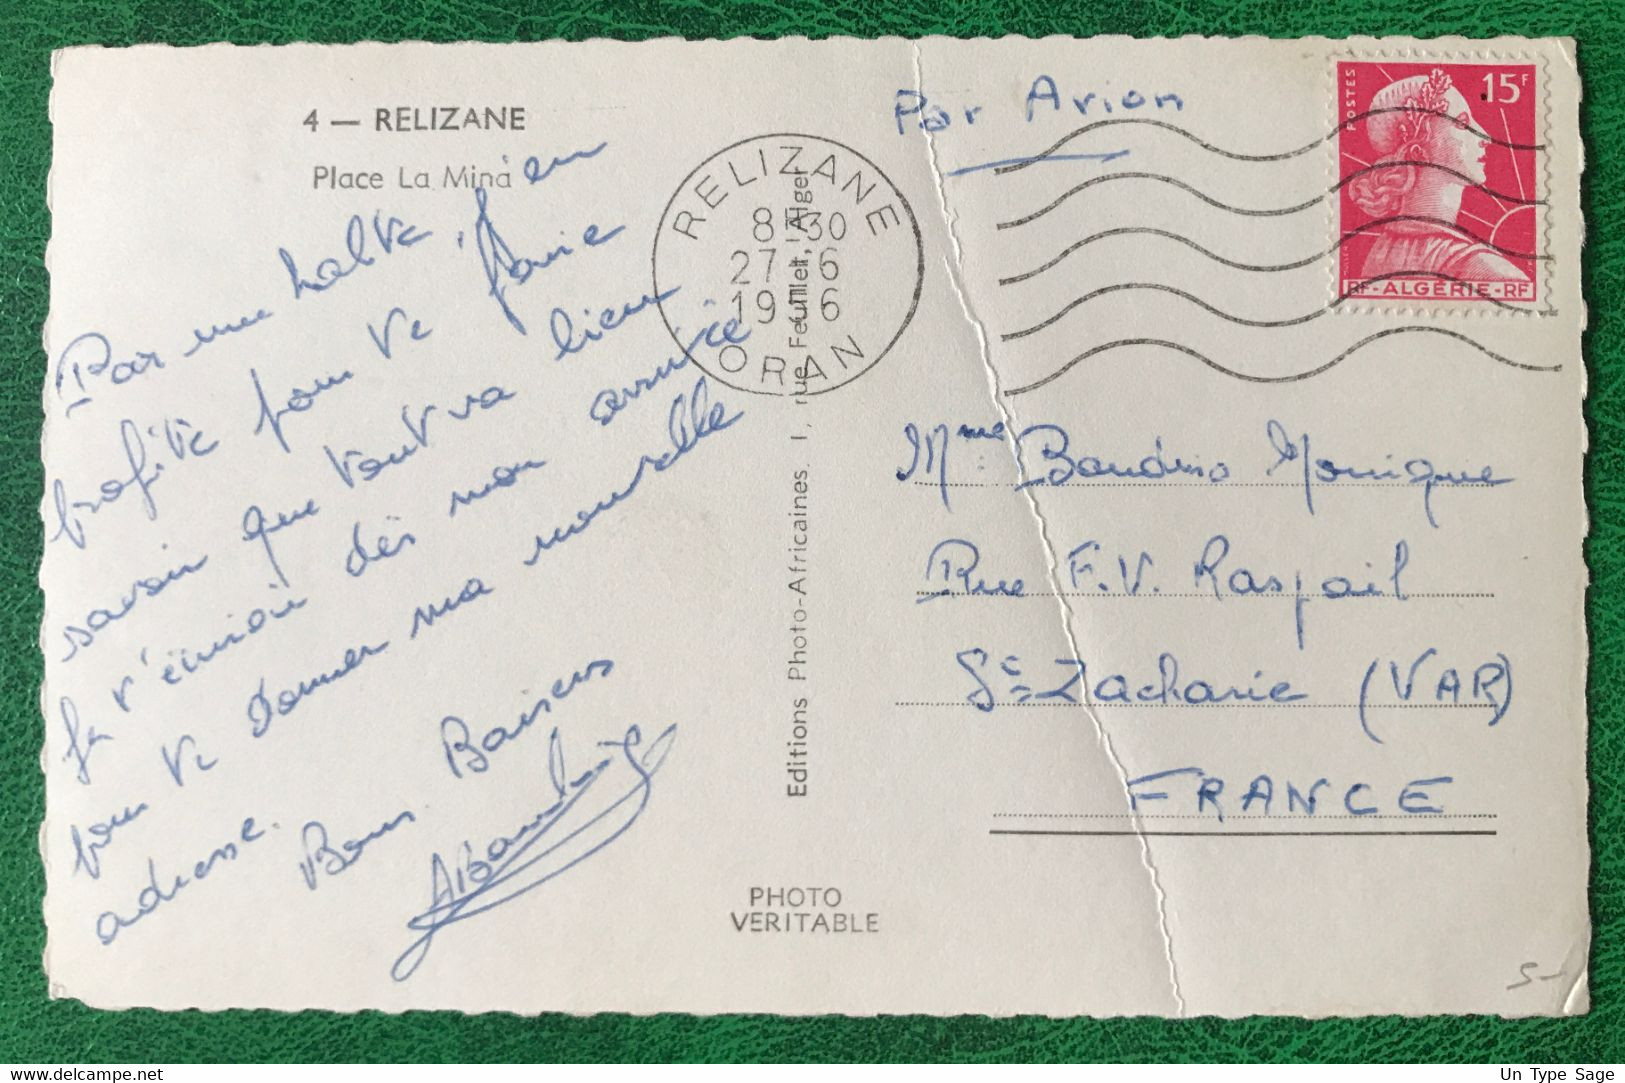 4 — RELIZANE
Place La Mina
Par une halte, j'en
profite pour te faire
savoir que tout va bien
Je t'écrirai dès mon arrivée
pour te donner ma nouvelle
adresse.
Bons Baisers
RELIZANE
8 H 30
27 - 6
19 6
ORAN
Editions Photo-Africaines. 1, rue Feuillet, Alger
PHOTO
VERITABLE
Par Avion
POSTES
15F
RF-ALGERIE-RF
Mme Baudino Monique
Rue F.V. Raspail
St Zacharie (VAR)
FRANCE
5-
Un Type Sage
delcampe.net